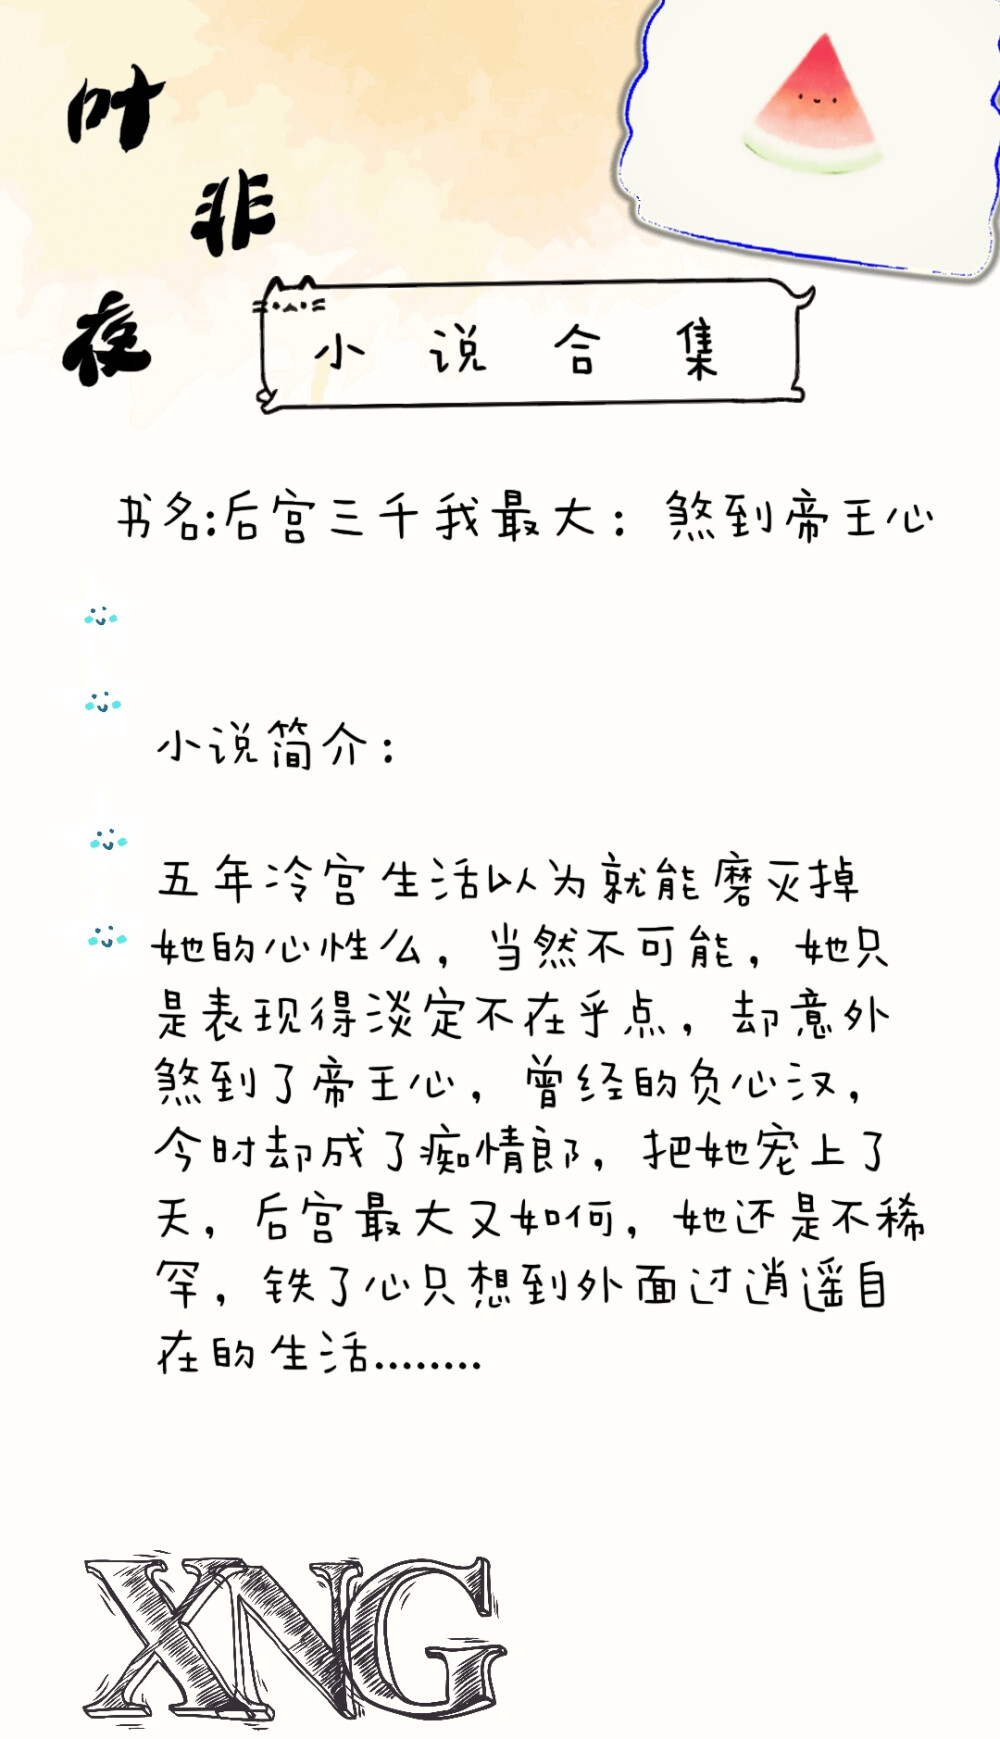 叶
非
夜
小说合集
书名:后宫三千我最大：煞到帝王心
小说简介：
五年冷宫生活以为就能磨灭掉
她的心性么，当然不可能，她只
是表现得淡定不在乎点，却意外
煞到了帝王心，曾经的负心汉，
今时却成了痴情郎，把她宠上了
天，后宫最大又如何，她还是不稀
罕，铁了心只想到外面过逍遥自
在的生活........
XNG